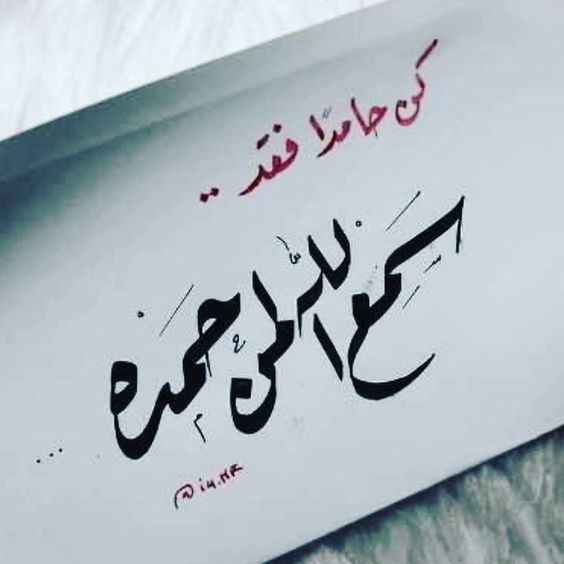 كن حامدًا فقد ..
سَمِعَ اللّٰه لمن حَمده ...
@i4.HR